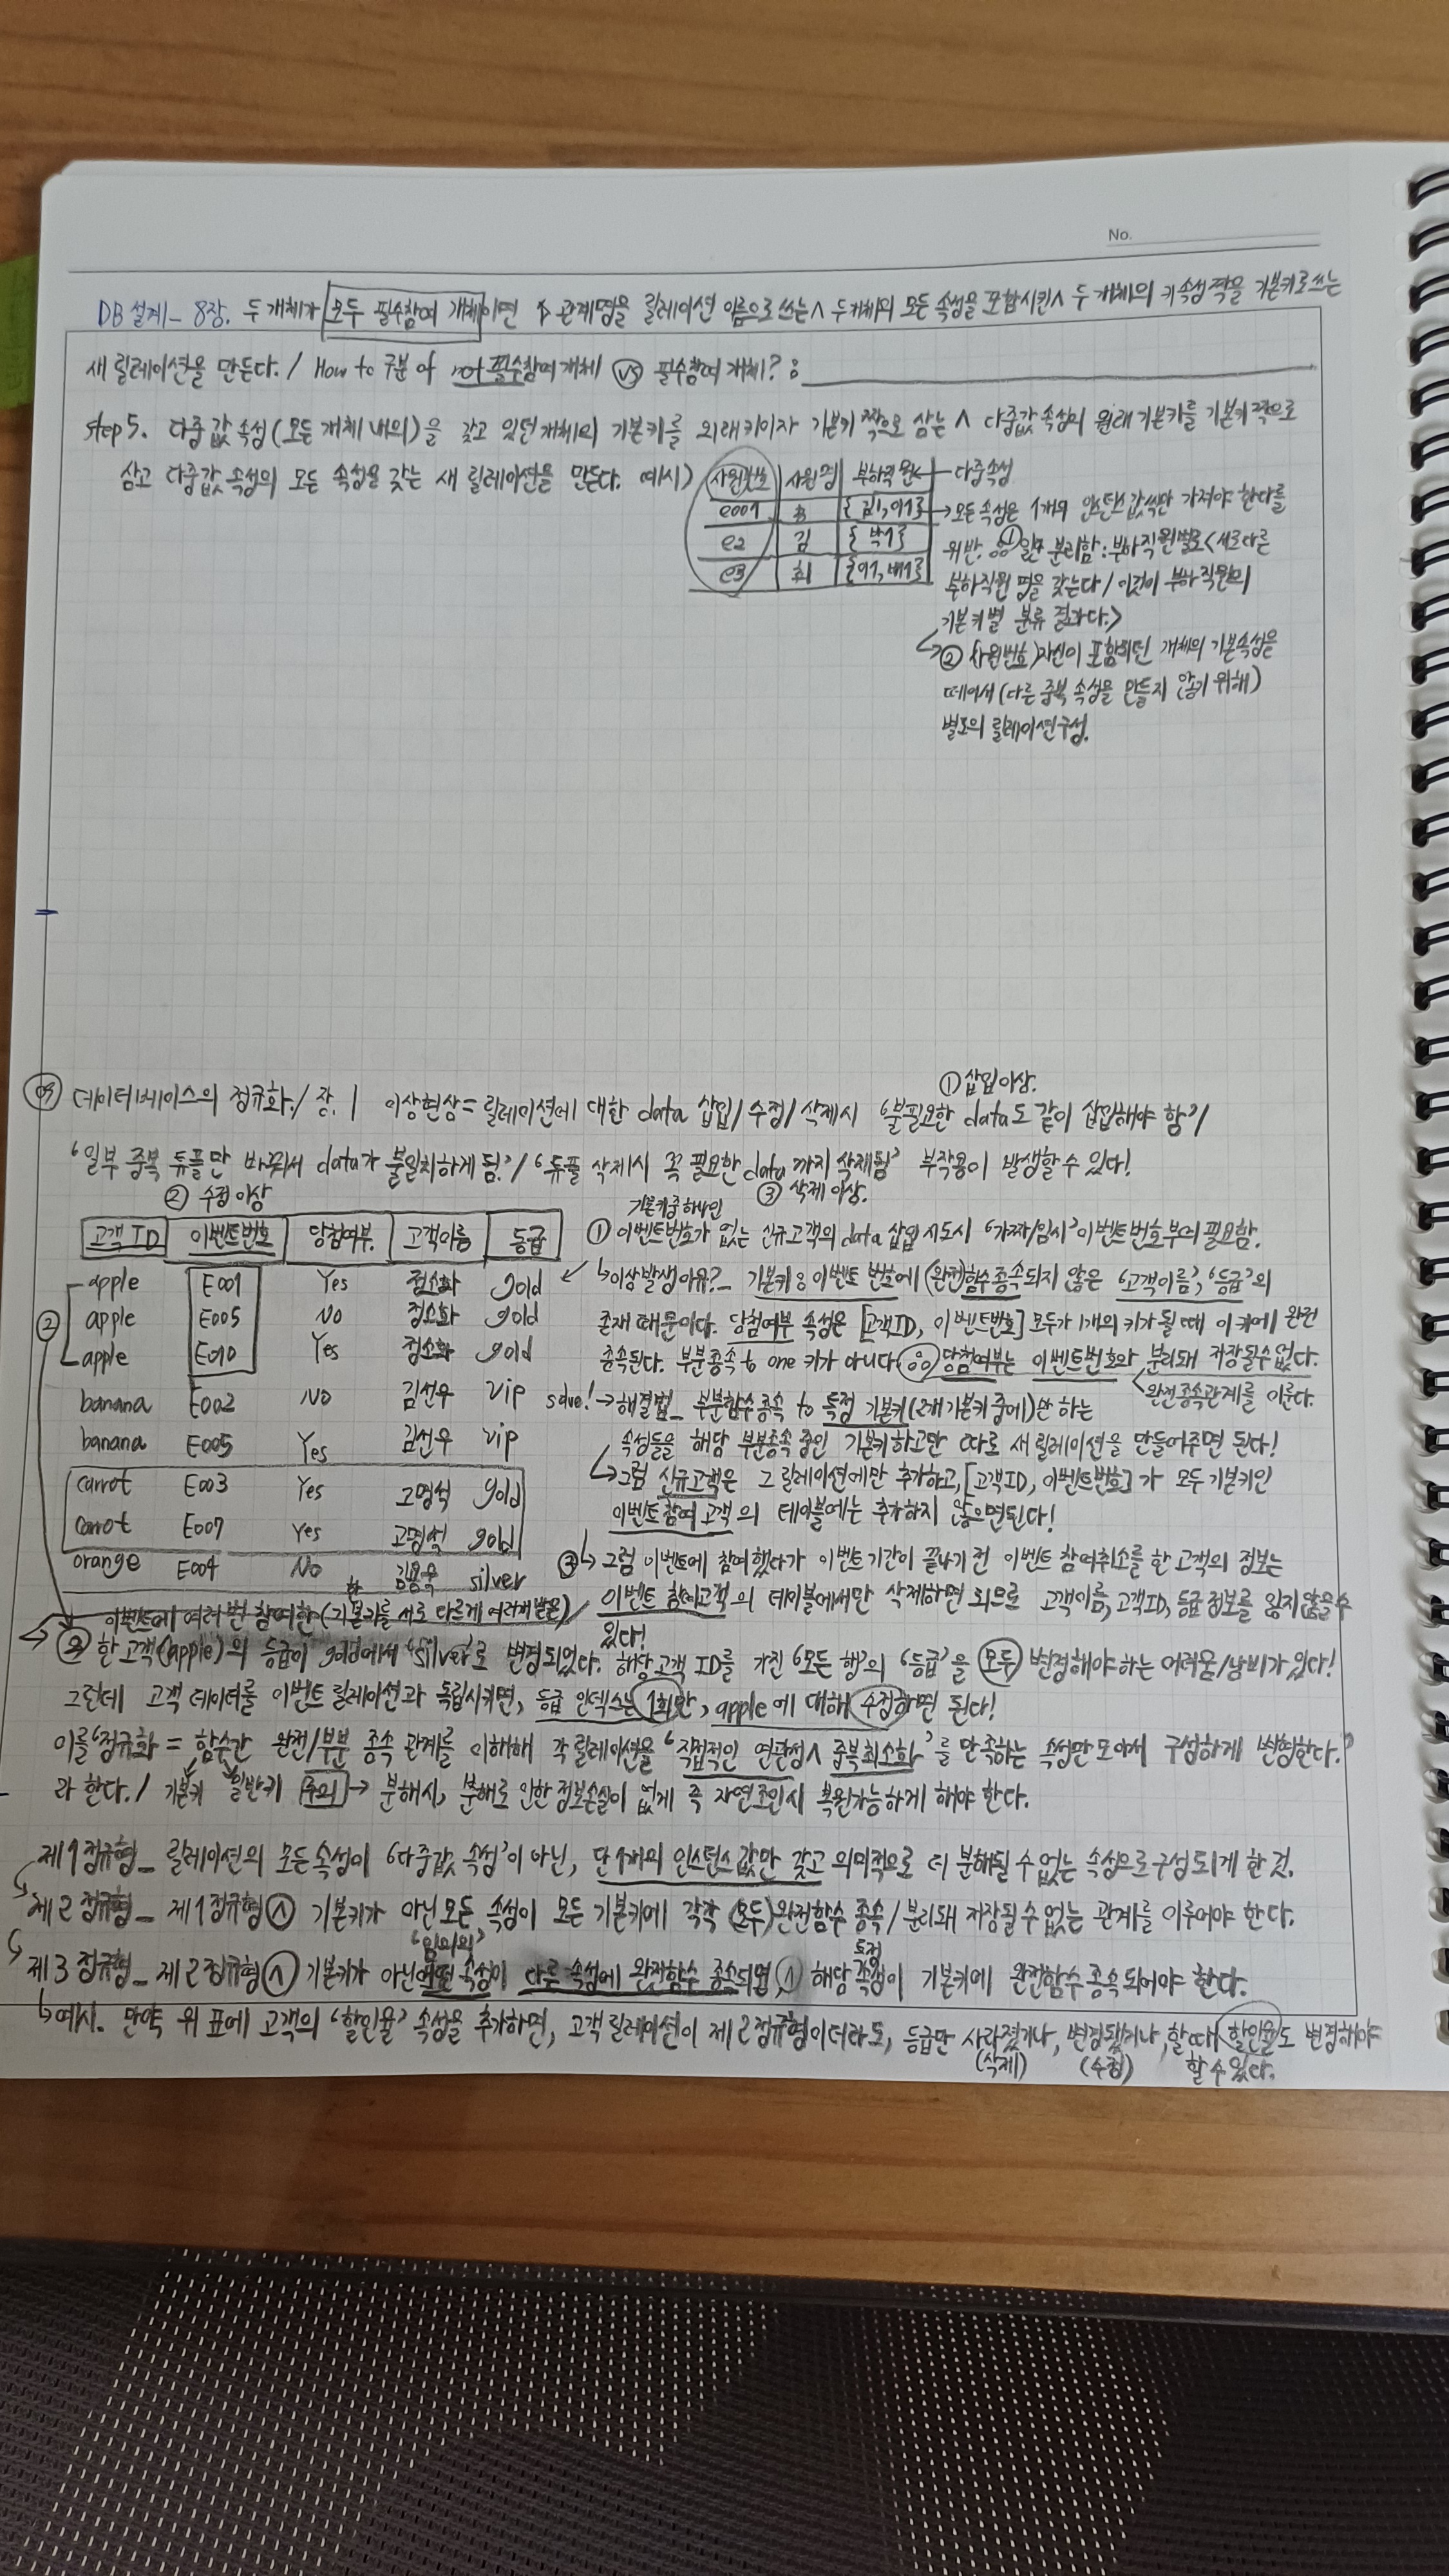 No.
DB 설계_ 8장. 두 개체가 모두 필수참여 개체이면 ▷ 관계명을 릴레이션 이름으로 쓰는 ∧ 두 개체의 모든 속성을 포함시킨 ∧ 두 개체의 키속성 짝을 기본키로 쓰는
새 릴레이션을 만든다. / How to 구분 of not 필수참여 개체 vs 필수참여 개체? :
step 5. 다중값 속성(모든 개체 내의)을 갖고 있던 개체의 기본키를 외래키이자 기본키 짝으로 삼는 ∧ 다중값 속성의 원래 기본키를 기본키 짝으로
삼고 다중값 속성의 모든 속성을 갖는 새 릴레이션을 만든다. 예시)
사원번호 사원명 부하직원 ← 다중속성
e001 홍 {김1, 이1} → 모든 속성은 1개의 인스턴스값씩만 가져야 한다를
e2 김 {박1} 위반. ① 일단 분리함: 부하직원별로 <서로 다른
e3 최 {이1, 배1} 부하직원 명을 갖는다 / 이것이 부하직원의
기본키별 분류 결과다.>
② (사원번호) 자신이 포함되던 개체의 기본속성을
떼어서 (다른 중복 속성을 만들지 않기 위해)
별도의 릴레이션 구성.
① 삽입이상.
09 데이터베이스의 정규화 / 장. | 이상현상 = 릴레이션에 대한 data 삽입/수정/삭제시 '불필요한 data도 같이 삽입해야 함' /
'일부 중복 튜플만 바꿔서 data가 불일치하게 됨.' / '튜플 삭제시 꼭 필요한 data까지 삭제됨' 부작용이 발생할 수 있다!
② 수정이상 ③ 삭제이상.
고객ID 이벤트번호 당첨여부 고객이름 등급
apple E001 Yes 정소화 gold
apple E005 No 정소화 gold
apple E010 Yes 정소화 gold
banana E002 No 김선우 vip
banana E005 Yes 김선우 vip
carrot E003 Yes 고명석 gold
carrot E007 Yes 고명석 gold
orange E004 No 김용욱 silver
기본키중 하나인
① 이벤트번호가 없는 신규고객의 data 삽입 시도시 '가짜/임시' 이벤트번호 부여 필요함.
↳ 이상발생이유?_ 기본키: 이벤트 번호에 (완전)함수종속되지 않은 '고객이름', '등급'의
존재 때문이다. 당첨여부 속성은 [고객ID, 이벤트번호] 모두가 1개의 키가 될 때 이 키에 완전
종속된다. 부분종속 to one 키가 아니다 ∵ 당첨여부는 이벤트번호와 분리돼 저장될 수 없다.
완전종속관계를 이룬다.
solve! → 해결법_ 부분함수 종속 to 특정 기본키(2개 기본키 중에)만 하는
속성들을 해당 부분종속 중인 기본키하고만 따로 새 릴레이션을 만들어주면 된다!
↳ 그럼 신규고객은 그 릴레이션에만 추가하고, [고객ID, 이벤트번호]가 모두 기본키인
이벤트참여 고객의 테이블에는 추가하지 않으면 된다!
③ ↳ 그럼 이벤트에 참여했다가 이벤트 기간이 끝나기 전 이벤트 참여취소를 한 고객의 정보는
이벤트 참여고객의 테이블에서만 삭제하면 되므로 고객이름, 고객ID, 등급 정보를 잃지 않을 수
있다!
이벤트에 여러 번 참여한 (기본키를 서로 다르게 여러개 받은)
② 한 고객(apple)의 등급이 gold에서 'silver'로 변경되었다. 해당 고객 ID를 가진 '모든 행'의 '등급'을 모두 변경해야 하는 어려움/낭비가 있다!
그런데 고객 데이터를 이벤트 릴레이션과 독립시키면, 등급 인덱스는 1회만, apple에 대해 수정하면 된다!
이를 '정규화 = 함수간 완전/부분 종속 관계를 이해해 각 릴레이션을 '직접적인 연관성 ∧ 중복최소화'를 만족하는 속성만 모아서 구성하게 변형한다.'
라 한다. / 기본키 일반키 주의 → 분해시, 분해로 인한 정보손실이 없게 즉 자연조인시 복원가능하게 해야 한다.
제1정규형_ 릴레이션의 모든 속성이 '다중값 속성'이 아닌, 단 1개의 인스턴스 값만 갖고 의미적으로 더 분해될 수 없는 속성으로 구성되게 한 것.
제2정규형_ 제1정규형 ∧ 기본키가 아닌 모든 속성이 모든 기본키에 각각 (모두) 완전함수 종속 / 분리돼 저장될 수 없는 관계를 이루어야 한다.
'임의의' 특정
제3정규형_ 제2정규형 ∧ 기본키가 아닌 어떤 속성이 다른 속성에 완전함수 종속되면, ∧ 해당 속성이 기본키에 완전함수 종속되어야 한다.
↳ 예시. 만약 위 표에 고객의 '할인율' 속성을 추가하면, 고객 릴레이션이 제2정규형이더라도, 등급만 사라졌거나, 변경됐거나, 할때 할인율도 변경해야
(삭제) (수정) 할 수 있다.